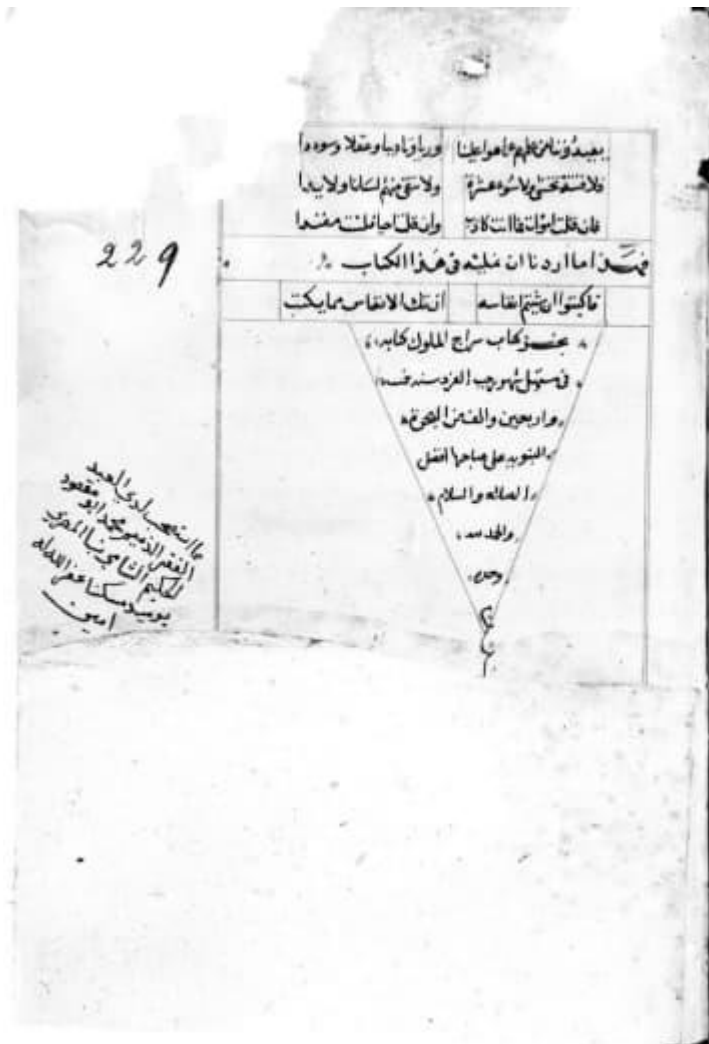 يفيدوننا من علمهم ما هوا علينا ورياوتاديبا وعقلا وسوددا
فلا فتنة تخشى ولا سوء عشرة ولا نتقى منهم لسانا ولا يدا
فان قلت اموات فما انت كاذب وان قلت احيا فلست مفندا
فهذا ما اردنا ان نمليه فى هذا الكتاب
فاكتبوا ان شيتم انفاسه ان تلك الانفاس مما يكتب
كتاب سراج الملوك كتابه
فى مستهل شهر رجب الفرد سنة
واربعين والف من الهجرة
النبويه على صاحبها افضل
الصلاه والسلام
والحمد لله
وحده
م
م
م
229
العبد
الفقير محمد ابو
الحكيم المصرى
يوميد مسكنا غفر الله له
امين